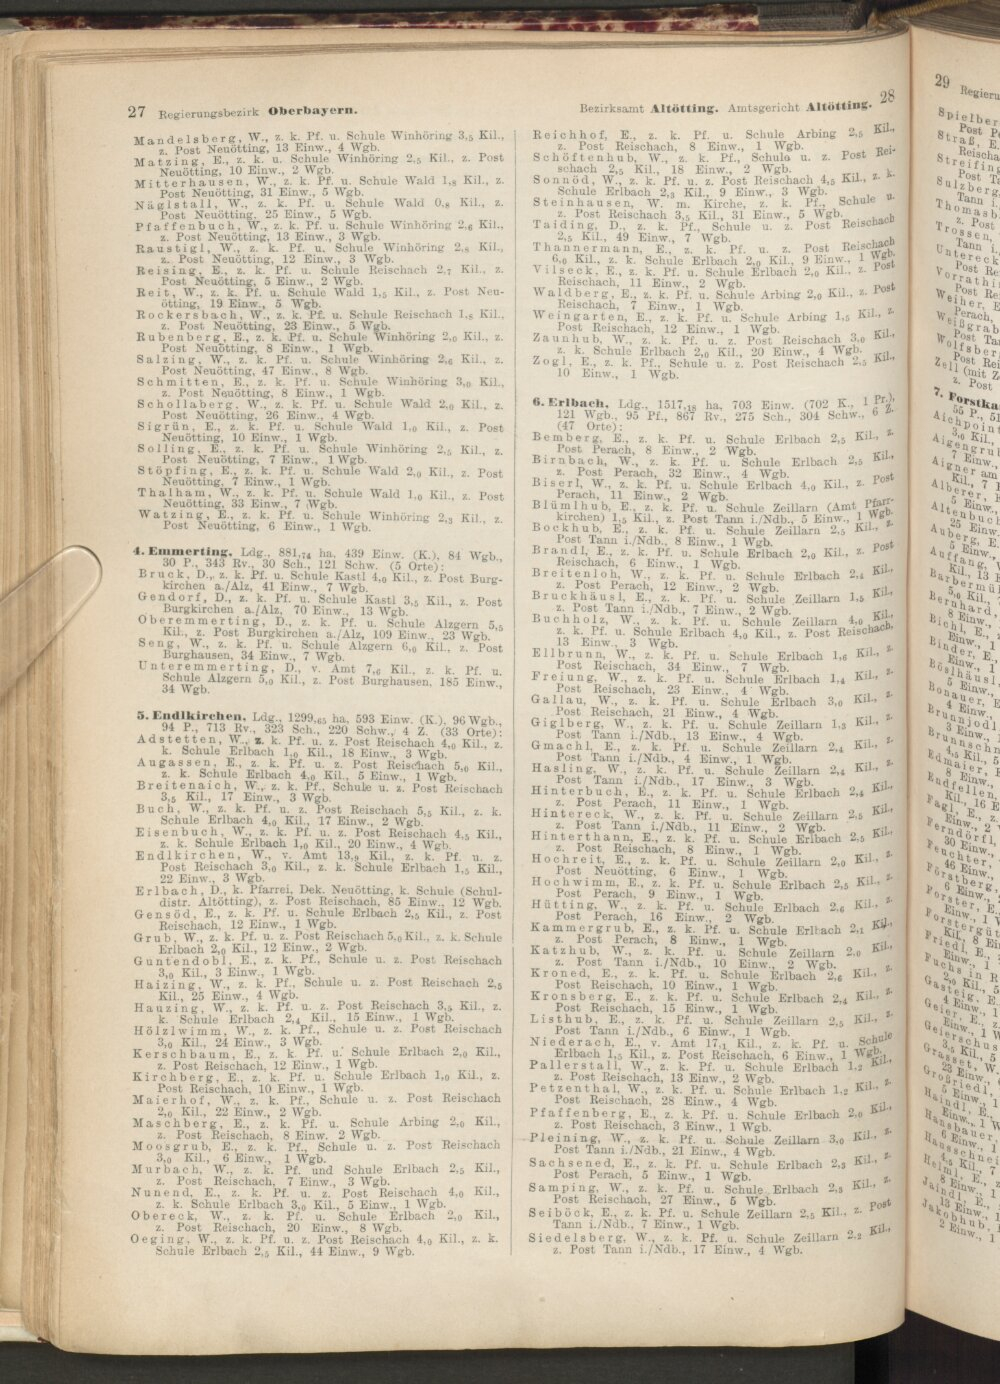 27 Regierungsbezirk Oberbayern.
Mandelsberg, W., z. k. Pf. u. Schule Winhöring 3,5 Kil.,
z. Post Neuötting, 13 Einw., 4 Wgb.
Matzing, E., z. k. u. Schule Winhöring 2,5 Kil., z. Post
Neuötting, 10 Einw., 2 Wgb.
Mitterhausen, W., z. k. Pf. u. Schule Wald 1,8 Kil., z.
Post Neuötting, 31 Einw., 5 Wgb.
Näglstall, W., z. k. Pf. u. Schule Wald 0,8 Kil., z.
Post Neuötting, 25 Einw., 5 Wgb.
Pfaffenbuch, W., z. k. Pf. u. Schule Winhöring 2,6 Kil.,
z. Post Neuötting, 13 Einw., 3 Wgb.
Raustigl, W., z. k. Pf. u. Schule Winhöring 2,8 Kil.,
z. Post Neuötting, 12 Einw., 3 Wgb.
Reising, E., z. k. Pf. u. Schule Reischach 2,7 Kil., z.
Post Neuötting, 5 Einw., 2 Wgb.
Reit, W., z. k. Pf. u. Schule Wald 1,5 Kil., z. Post Neu-
ötting, 19 Einw., 5 Wgb.
Rockersbach, W., z. k. Pf. u. Schule Reischach 1,8 Kil.,
z. Post Neuötting, 23 Einw., 5 Wgb.
Rubenberg, E., z. k. Pf. u. Schule Winhöring 2,0 Kil., z.
Post Neuötting, 8 Einw., 1 Wgb.
Salzing, W., z. k. Pf. u. Schule Winhöring 2,6 Kil., z.
Post Neuötting, 47 Einw., 8 Wgb.
Schmitten, E., z. k. Pf. u. Schule Winhöring 3,0 Kil.,
z. Post Neuötting, 8 Einw., 1 Wgb.
Schollaberg, W., z. k. Pf. u. Schule Wald 2,0 Kil., z.
Post Neuötting, 26 Einw., 4 Wgb.
Sigrün, E., z. k. Pf. u. Schule Wald 1,0 Kil., z. Post
Neuötting, 10 Einw., 1 Wgb.
Solling, E., z. k. Pf. u. Schule Winhöring 2,5 Kil., z.
Post Neuötting, 7 Einw., 1 Wgb.
Stöpfing, E., z. k. Pf. u. Schule Wald 2,0 Kil., z. Post
Neuötting, 7 Einw., 1 Wgb.
Thalham, W., z. k. Pf. u. Schule Wald 1,0 Kil., z. Post
Neuötting, 33 Einw., 7 Wgb.
Watzing, E., z. k. Pf. u. Schule Winhöring 2,3 Kil., z.
Post Neuötting, 6 Einw., 1 Wgb.
4. Emmerting, Ldg., 881,74 ha, 439 Einw. (K.), 84 Wgb.,
30 P., 343 Rv., 30 Sch., 121 Schw. (5 Orte):
Bruck, D., z. k. Pf. u. Schule Kastl 4,0 Kil., z. Post Burg-
kirchen a./Alz, 41 Einw., 7 Wgb.
Gendorf, D., z. k. Pf. u. Schule Kastl 3,5 Kil., z. Post
Burgkirchen a./Alz, 70 Einw., 13 Wgb.
Oberemmerting, D., z. k. Pf. u. Schule Alzgern 5,5
Kil., z. Post Burgkirchen a./Alz, 109 Einw., 23 Wgb.
Seng, W., z. k. Pf. u. Schule Alzgern 6,0 Kil., z. Post
Burghausen, 34 Einw., 7 Wgb.
Unteremmerting, D., v. Amt 7,6 Kil., z. k. Pf. u.
Schule Alzgern 5,0 Kil., z. Post Burghausen, 185 Einw.,
34 Wgb.
5. Endlkirchen, Ldg., 1299,65 ha, 593 Einw. (K.), 96 Wgb.,
94 P., 713 Rv., 323 Sch., 220 Schw., 4 Z. (33 Orte):
Adstetten, W., z. k. Pf. u. z. Post Reischach 4,0 Kil., z.
k. Schule Erlbach 1,0 Kil., 18 Einw., 3 Wgb.
Augassen, E., z. k. Pf. u. z. Post Reischach 5,0 Kil.,
z. k. Schule Erlbach 4,0 Kil., 5 Einw., 1 Wgb.
Breitenaich, W., z. k. Pf., Schule u. z. Post Reischach
3,5 Kil., 17 Einw., 3 Wgb.
Buch, W., z. k. Pf. u. z. Post Reischach 5,5 Kil., z. k.
Schule Erlbach 4,0 Kil., 17 Einw., 2 Wgb.
Eisenbuch, W., z. k. Pf. u. z. Post Reischach 4,5 Kil.,
z. k. Schule Erlbach 1,0 Kil., 20 Einw., 4 Wgb.
Endlkirchen, W., v. Amt 13,8 Kil., z. k. Pf. u. z.
Post Reischach 3,0 Kil., z. k. Schule Erlbach 1,5 Kil.,
22 Einw., 3 Wgb.
Erlbach, D., k. Pfarrei, Dek. Neuötting, k. Schule (Schul-
distr. Altötting), z. Post Reischach, 85 Einw., 12 Wgb.
Gensöd, E., z. k. Pf. u. Schule Erlbach 2,5 Kil., z. Post
Reischach, 12 Einw., 1 Wgb.
Grub, W., z. k. Pf. u. z. Post Reischach 5,0 Kil., z. k. Schule
Erlbach 2,0 Kil., 12 Einw., 2 Wgb.
Guntendobl, E., z. k. Pf., Schule u. z. Post Reischach
3,0 Kil., 3 Einw., 1 Wgb.
Haizing, W., z. k. Pf., Schule u. z. Post Reischach 2,5
Kil., 25 Einw., 4 Wgb.
Hauzing, W., z. k. Pf. u. z. Post Reischach 3,5 Kil., z.
k. Schule Erlbach 2,4 Kil., 15 Einw., 1 Wgb.
Hölzlwimm, W., z. k. Pf., Schule u. z. Post Reischach
3,0 Kil., 24 Einw., 3 Wgb.
Kerschbaum, E., z. k. Pf. u. Schule Erlbach 2,0 Kil.,
z. Post Reischach, 12 Einw., 1 Wgb.
Kirchberg, E., z. k. Pf. u. Schule Erlbach 1,0 Kil., z.
Post Reischach, 10 Einw., 1 Wgb.
Maierhof, W., z. k. Pf., Schule u. z. Post Reischach
2,0 Kil., 22 Einw., 2 Wgb.
Maschberg, E., z. k. Pf. u. Schule Arbing 2,0 Kil.,
z. Post Reischach, 8 Einw. 2 Wgb.
Moosgrub, E., z. k. Pf., Schule u. z. Post Reischach
3,0 Kil., 6 Einw., 1 Wgb.
Murbach, W., z. k. Pf. und Schule Erlbach 2,5 Kil.,
z. Post Reischach, 7 Einw., 3 Wgb.
Nunend, E., z. k. Pf. u. z. Post Reischach 4,0 Kil.,
z. k. Schule Erlbach 3,0 Kil., 5 Einw., 1 Wgb.
Obereck, W., z. k. Pf. u. Schule Erlbach 2,0 Kil.,
z. Post Reischach, 20 Einw., 8 Wgb.
Oeging, W., z. k. Pf. u. z. Post Reischach 4,0 Kil., z. k.
Schule Erlbach 2,5 Kil., 44 Einw., 9 Wgb.
Bezirksamt Altötting. Amtsgericht Altötting. 28
Reichhof, E., z. k. Pf. u. Schule Arbing 2,5 Kil.,
z. Post Reischach, 8 Einw., 1 Wgb.
Schöftenhub, W., z. k. Pf., Schule u. z. Post Rei-
schach 2,5 Kil., 18 Einw., 2 Wgb.
Sonnöd, W., z. k. Pf. u. z. Post Reischach 4,5 Kil., z. k.
Schule Erlbach 2,8 Kil., 9 Einw., 3 Wgb.
Steinhausen, W. m. Kirche, z. k. Pf., Schule u.
z. Post Reischach 3,5 Kil., 31 Einw., 5 Wgb.
Taiding, D., z. k. Pf., Schule u. z. Post Reischach
2,5 Kil., 49 Einw., 7 Wgb.
Thannermann, E., z. k. Pf. u. z. Post Reischach
6,0 Kil., z. k. Schule Erlbach 2,0 Kil., 9 Einw., 1 Wgb.
Vilseck, E., z. k. Pf. u. Schule Erlbach 2,0 Kil., z. Post
Reischach, 11 Einw., 2 Wgb.
Waldberg, E., z. k. Pf. u. Schule Arbing 2,0 Kil., z. Post
Reischach, 7 Einw., 1 Wgb.
Weingarten, E., z. k. Pf. u. Schule Arbing 1,5 Kil., z.
Post Reischach, 12 Einw., 1 Wgb.
Zaunhub, W., z. k. Pf. u. z. Post Reischach 3,0 Kil.,
z. k. Schule Erlbach 2,0 Kil., 20 Einw., 4 Wgb.
Zogl, E., z. k. Pf., Schule u. z. Post Reischach 2,5 Kil.,
10 Einw., 1 Wgb.
6. Erlbach, Ldg., 1517,18 ha, 703 Einw. (702 K., 1 Pr.),
121 Wgb., 95 Pf., 867 Rv., 275 Sch., 304 Schw., 6 Z.
(47 Orte):
Bemberg, E., z. k. Pf. u. Schule Erlbach 2,5 Kil., z.
Post Perach, 8 Einw., 2 Wgb.
Birnbach, W., z. k. Pf. u. Schule Erlbach 2,5 Kil.,
z. Post Perach, 32 Einw., 4 Wgb.
Biserl, W., z. k. Pf. u. Schule Erlbach 4,0 Kil., z. Post
Perach, 11 Einw., 2 Wgb.
Blümlhub, E., z. k. Pf. u. Schule Zeillarn (Amt Pfarr-
kirchen) 1,5 Kil., z. Post Tann i./Ndb., 5 Einw., 1 Wgb.
Bockhub, E., z. k. Pf. u. Schule Zeillarn 2,5 Kil., z.
Post Tann i./Ndb., 8 Einw., 1 Wgb.
Brandl, E., z. k. Pf. u. Schule Erlbach 2,0 Kil., z. Post
Reischach, 6 Einw., 1 Wgb.
Breitenloh, W., z. k. Pf. u. Schule Erlbach 2,4 Kil.,
z. Post Perach, 12 Einw., 2 Wgb.
Bruckhäusl, E., z. k. Pf. u. Schule Zeillarn 1,5 Kil.,
z. Post Tann i./Ndb., 7 Einw., 2 Wgb.
Buchholz, W., z. k. Pf. u. Schule Zeillarn 4,0 Kil.,
z. k. Pf. u. Schule Erlbach 4,0 Kil., z. Post Reischach,
13 Einw., 3 Wgb.
Ellbrunn, W., z. k. Pf. u. Schule Erlbach 1,6 Kil., z.
Post Reischach, 34 Einw., 7 Wgb.
Freiung, W., z. k. Pf. u. Schule Erlbach 1,4 Kil., z.
Post Reischach, 23 Einw., 4 Wgb.
Gallau, W., z. k. Pf. u. Schule Erlbach 3,0 Kil., z.
Post Reischach, 21 Einw., 4 Wgb.
Giglberg, W., z. k. Pf. u. Schule Zeillarn 1,3 Kil., z.
Post Tann i./Ndb., 13 Einw., 4 Wgb.
Gmachl, E., z. k. Pf. u. Schule Zeillarn 2,4 Kil., z.
Post Tann i./Ndb., 4 Einw., 1 Wgb.
Hasling, W., z. k. Pf. u. Schule Zeillarn 2,4 Kil., z.
Post Tann i./Ndb., 17 Einw., 3 Wgb.
Hinterbuch, E., z. k. Pf. u. Schule Erlbach 2,4 Kil.,
z. Post Perach, 11 Einw., 1 Wgb.
Hintereck, W., z. k. Pf. u. Schule Zeillarn 2,5 Kil.,
z. Post Tann i./Ndb., 11 Einw., 2 Wgb.
Hinterthann, E., z. k. Pf. u. Schule Erlbach 2,5 Kil.,
z. Post Reischach, 8 Einw., 1 Wgb.
Hochreit, E., z. k. Pf. u. Schule Zeillarn 2,0 Kil., z.
Post Neuötting, 6 Einw., 1 Wgb.
Hochwimm, E., z. k. Pf. u. Schule Erlbach 2,5 Kil., z.
Post Perach, 9 Einw., 1 Wgb.
Hütting, W., z. k. Pf. u. Schule Erlbach 2,6 Kil., z.
Post Perach, 16 Einw., 2 Wgb.
Kammergrub, E., z. k. Pf. u. Schule Erlbach 2,1 Kil.,
z. Post Perach, 8 Einw., 1 Wgb.
Katzhub, W., z. k. Pf. u. Schule Zeillarn 2,0 Kil.,
z. Post Tann i./Ndb., 10 Einw., 2 Wgb.
Kroned, E., z. k. Pf. u. Schule Erlbach 2,6 Kil., z.
Post Reischach, 10 Einw., 1 Wgb.
Kronsberg, E., z. k. Pf. u. Schule Erlbach 2,4 Kil., z.
Post Reischach, 15 Einw., 1 Wgb.
Listhub, E., z. k. Pf. u. Schule Zeillarn 2,5 Kil., z.
Post Tann i./Ndb., 6 Einw., 1 Wgb.
Niederach, E., v. Amt 17,1 Kil., z. k. Pf. u. Schule
Erlbach 1,5 Kil., z. Post Reischach, 6 Einw., 1 Wgb.
Pallerstall, W., z. k. Pf. u. Schule Erlbach 1,2 Kil.,
z. Post Reischach, 13 Einw., 2 Wgb.
Petzenthal, W., z. k. Pf. u. Schule Erlbach 1,2 Kil., z.
Post Reischach, 28 Einw., 4 Wgb.
Pfaffenberg, E., z. k. Pf. u. Schule Erlbach 2,0 Kil.,
z. Post Reischach, 3 Einw., 1 Wgb.
Pleining, W., z. k. Pf. u. Schule Zeillarn 3,0 Kil., z.
Post Tann i./Ndb., 21 Einw., 4 Wgb.
Sachsened, E., z. k. Pf. u. Schule Erlbach 2,3 Kil., z.
Post Perach, 5 Einw., 1 Wgb.
Samping, W., z. k. Pf. u. Schule Erlbach 2,5 Kil., z.
Post Reischach, 27 Einw., 5 Wgb.
Seiböck, E., z. k. Pf. u. Schule Zeillarn 2,5 Kil., z. Post
Tann i./Ndb., 7 Einw., 1 Wgb.
Siedelsberg, W., z. k. Pf. u. Schule Zeillarn 2,2 Kil.,
z. Post Tann i./Ndb., 17 Einw., 4 Wgb.
29
7. Forstka